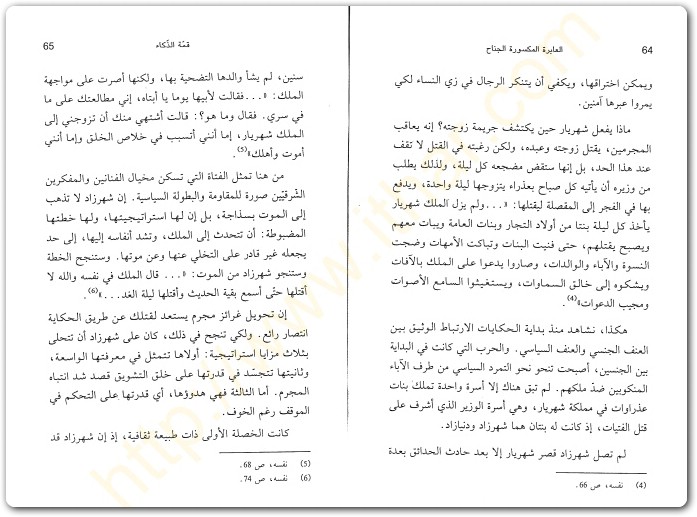 64
العابرة المكسورة الجناح
ويمكن اختراقها، ويكفي أن يتنكر الرجال في زي النساء لكي
يمروا عبرها آمنين.
ماذا يفعل شهريار حين يكتشف جريمة زوجته؟ إنه يعاقب
المجرمين، يقتل زوجته وعبده، ولكن رغبته في القتل لا تقف
عند هذا الحد، بل إنها ستقض مضجعه كل ليلة، ولذلك يطلب
من وزيره أن يأتيه كل صباح بعذراء يتزوجها ليلة واحدة، ويدفع
بها في الفجر إلى المقصلة ليقتلها: «...ولم يزل الملك شهريار
يأخذ كل ليلة بنتا من أولاد التجار وبنات العامة ويبات معهم
ويصبح يقتلهم، حتى فنيت البنات وتباكت الأمهات وضجت
النسوة والآباء والوالدات، وصاروا يدعوا على الملك بالآفات
ويشكوه إلى خالق السماوات، ويستغيثوا السامع الأصوات
ومجيب الدعوات»(4).
هكذا، نشاهد منذ بداية الحكايات الارتباط الوثيق بين
العنف الجنسي والعنف السياسي. والحرب التي كانت في البداية
بين الجنسين، أصبحت تنحو نحو التمرد السياسي من طرف الآباء
المنكوبين ضدّ ملكهم. لم تبق هناك إلا أسرة واحدة تملك بنات
عذراوات في مملكة شهريار، وهي أسرة الوزير الذي أشرف على
قتل الفتيات، إذ كانت له بنتان هما شهرزاد ودنيازاد.
لم تصل شهرزاد قصر شهريار إلا بعد حادث الحدائق بعدة
(4) نفسه، ص 66.
قمّة الذّكاء
65
سنين، لم يشأ والدها التضحية بها، ولكنها أصرت على مواجهة
الملك: «...فقالت لأبيها يوما يا أبتاه، إني مطالعتك على ما
في سري. فقال وما هو؟: قالت أشتهي منك أن تزوجني إلى
الملك شهريار، إما أنني أتسبب في خلاص الخلق وإما أنني
أموت وأهلك»(5).
من هنا تمثل الفتاة التي تسكن مخيال الفنانين والمفكرين
الشّرقيّين صورة للمقاومة والبطولة السياسية. إن شهرزاد لا تذهب
إلى الموت بسذاجة، بل إن لها استراتيجيتها، ولها خطتها
المضبوطة: أن تتحدث إلى الملك، وتشد أنفاسه إليها، إلى حد
يجعله غير قادر على التخلي عنها وعن موتها. وستنجح الخطة
وستنجو شهرزاد من الموت: «... قال الملك في نفسه والله لا
أقتلها حتّى أسمع بقية الحديث وأقتلها ليلة الغد...»(6).
إن تحويل غرائز مجرم يستعد لقتلك عن طريق الحكاية
انتصار رائع. ولكي تنجح في ذلك، كان على شهرزاد أن تتحلى
بثلاث مزايا استراتيجية: أولاها تتمثل في معرفتها الواسعة،
وثانيتها تتجسّد في قدرتها على خلق التشويق قصد شد انتباه
المجرم. أما الثالثة فهي هدوؤها، أي قدرتها على التحكم في
الموقف رغم الخوف.
كانت الخصلة الأولى ذات طبيعة ثقافية، إذ إن شهرزاد قد
(5) نفسه، ص 68.
(6) نفسه، ص 74.